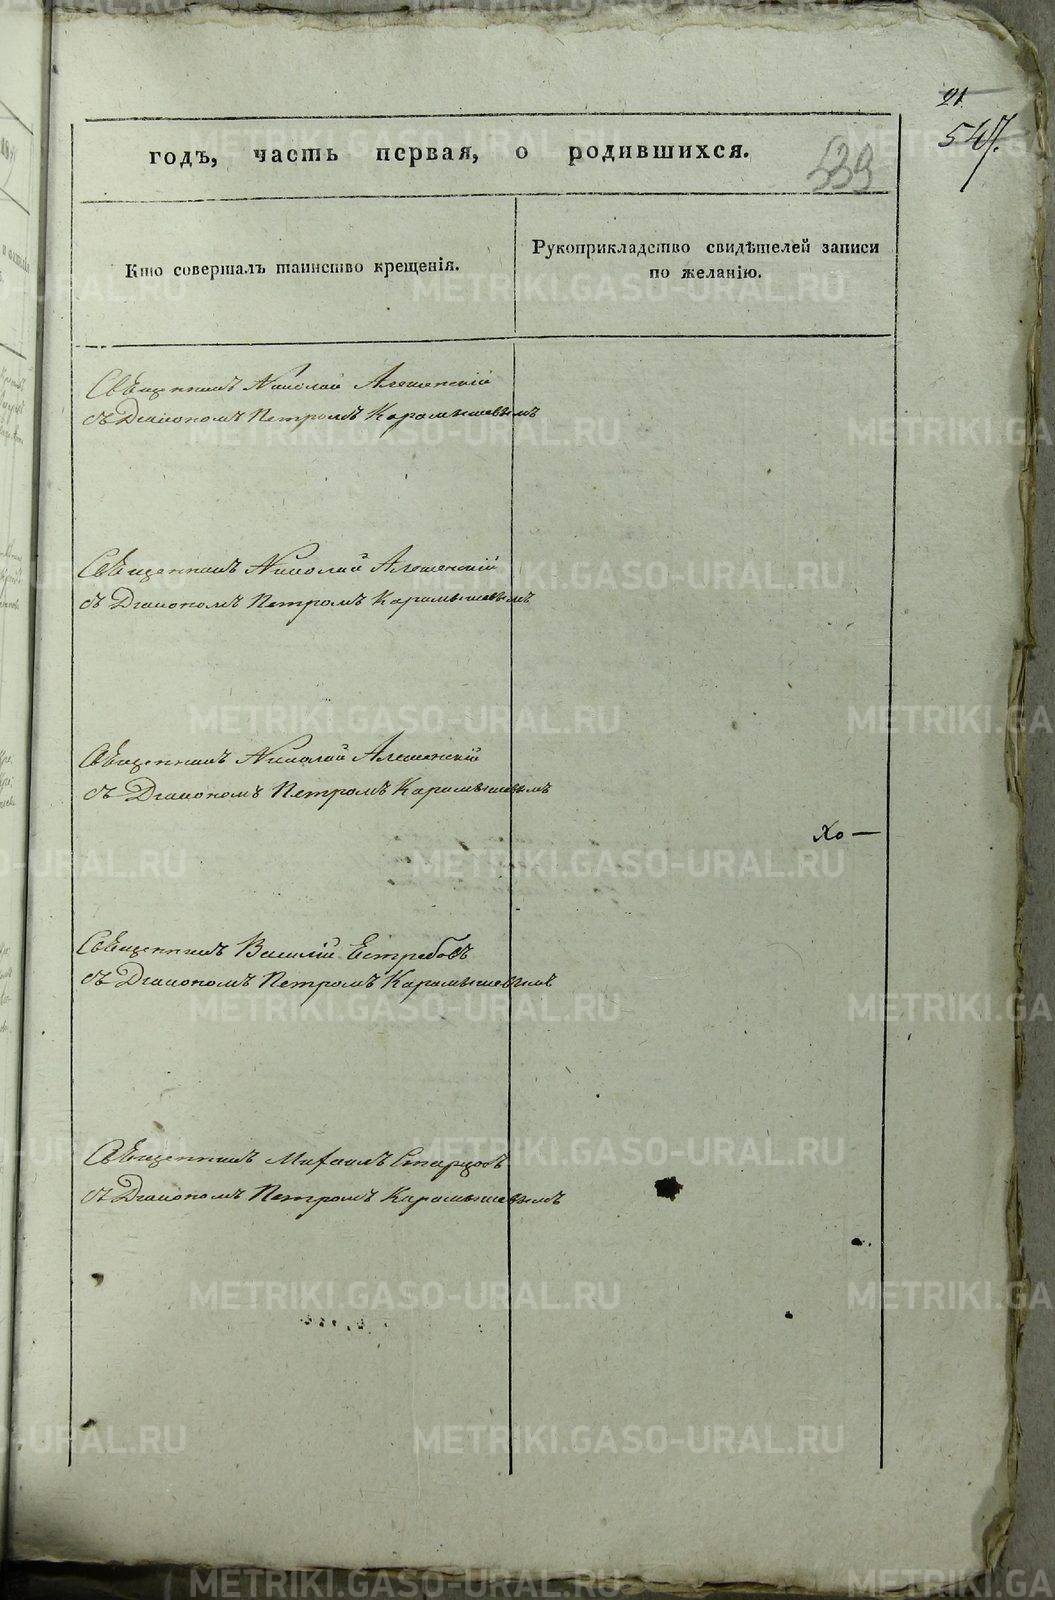 21
547.
годъ, часть первая, о родившихся.
539
Кто совершалъ таинство крещенія.
Рукоприкладство свидѣтелей записи
по желанію.
Священникъ Николай
съ Діакономъ Петромъ Карамышевымъ
Священникъ Николай
съ Діакономъ Петромъ Карамышевымъ
Священникъ Николай
съ Діакономъ Петромъ Карамышевымъ
Хо —
Священникъ Василій Ястребовъ
съ Діакономъ Петромъ Карамышевымъ
Священникъ Михаилъ Старцовъ
съ Діакономъ Петромъ Карамышевымъ
METRIKI.GASO-URAL.RU